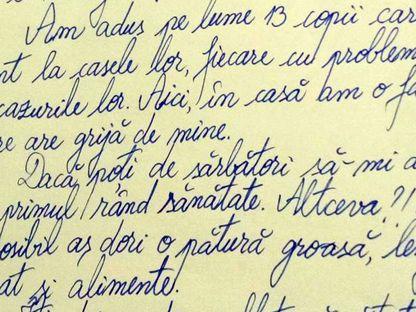 Am adus pe lume 13 copii car
nt la casele lor, fiecare cu problem
cazurile lor. Aici, în casă am o f
re are grijă de mine.
Dacă poți de sărbători să-mi a
primul rând sănătate. Altceva?!
osibil aș dori o pătură groasă, le
at și alimente.